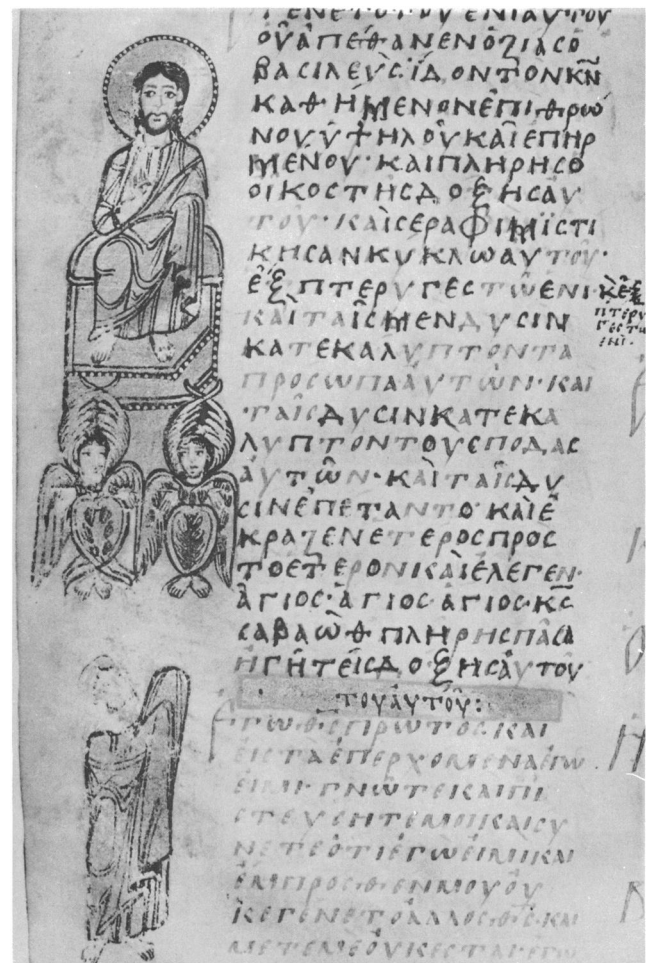 ΓΕΝΕΤΟΤΟΥΕΝΙΑΥΤΟΥ
ΟΥἈΠΕΘΑΝΕΝΟΖΙΑϹΟ
ΒΑϹΙΛΕΥϹΪΔΟΝΤΟΝΚ̅Ν̅
ΚΑΘΗΜΕΝΟΝΕΠΙΘΡΩ
ΝΟΥΥΨΗΛΟΥΚΑΙΕΠΗΡ
ΜΕΝΟΥ·ΚΑΙΠΛΗΡΗϹΟ
ΟΙΚΟϹΤΗϹΔΟΞΗϹΑΥ
ΤΟΥ·ΚΑΙϹΕΡΑΦΙΜΪϹΤΙ
ΚΗϹΑΝΚΥΚΛΩΑΥΤΟΥ·
ΕΞΠΤΕΡΥΓΕϹΤΩΕΝΙ·
ΚΕΞ
ΠΤΕΡΥ
ΓΕϹΤΩ
ΕΝΙ·
ΚΑΙΤΑΙϹΜΕΝΔΥϹΙΝ
ΚΑΤΕΚΑΛΥΠΤΟΝΤΑ
ΠΡΟϹΩΠΑΑΥΤΩΝ·ΚΑΙ
ΤΑΙϹΔΥϹΙΝΚΑΤΕΚΑ
ΛΥΠΤΟΝΤΟΥϹΠΟΔΑϹ
ΑΥΤΩΝ·ΚΑΙΤΑΙϹΔΥ
ϹΙΝΕΠΕΤΑΝΤΟ·ΚΑΙΕ
ΚΡΑΖΕΝΕΤΕΡΟϹΠΡΟϹ
ΤΟΕΤΕΡΟΝΚΑΙΕΛΕΓΕΝ·
ΑΓΙΟϹ·ΑΓΙΟϹ·ΑΓΙΟϹ·Κ̅Ϲ̅
ϹΑΒΑΩΘΠΛΗΡΗϹΠΑϹΑ
ΗΓΗΤΕΙϹΔΟΞΗϹΑΥΤΟΥ
ΤΟΥΑΥΤΟΥ:
ΕΓΩΘ̅Ϲ̅ΠΡΩΤΟϹΚΑΙ
ΕΙϹΤΑΕΠΕΡΧΟΜΕΝΑΕΓΩ
ΕΙΜΙ·ΓΝΩΤΕΚΑΙΠΙ
ϹΤΕΥϹΗΤΕΜΟΙΚΑΙϹΥ
ΝΕΤΕΟΤΙΕΓΩΕΙΜΙΚΑΙ
ΕΜΠΡΟϹΘΕΝΜΟΥΟΥ
ΚΕΓΕΝΕΤΟΑΛΛΟϹΘ̅Ϲ̅·ΚΑΙ
ΜΕΤΕΜΕΟΥΚΕϹΤΑΙ·ΕΓΩ